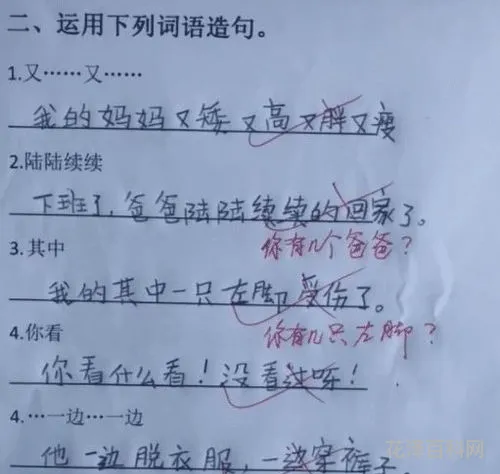 二、运用下列词语造句。
1.又……又……
我的妈妈又矮又高又胖又瘦
2.陆陆续续
下班了,爸爸陆陆续续的回家了。
你有几个爸爸?
3.其中
我的其中一只左脚受伤了。
你有几只左脚?
4.你看
你看什么看!没看过呀!
4.…一边…一边
他一边脱衣服,一边穿裤子
花洋百科网